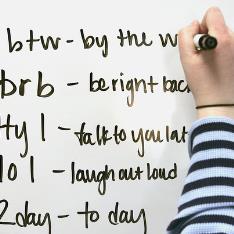 btw - by the w
brb - be right back
ttyl - talk to you lat
lol - laugh out loud
2day - to day